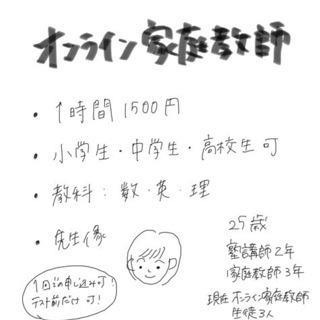 オンライン家庭教師
・1時間 1500円
・小学生・中学生・高校生 可
・教科：数・英・理
・先生像
1回のみ申し込み可！
テスト前だけ 可！
25歳
塾講師2年
家庭教師3年
現在オンライン家庭教師
生徒3人